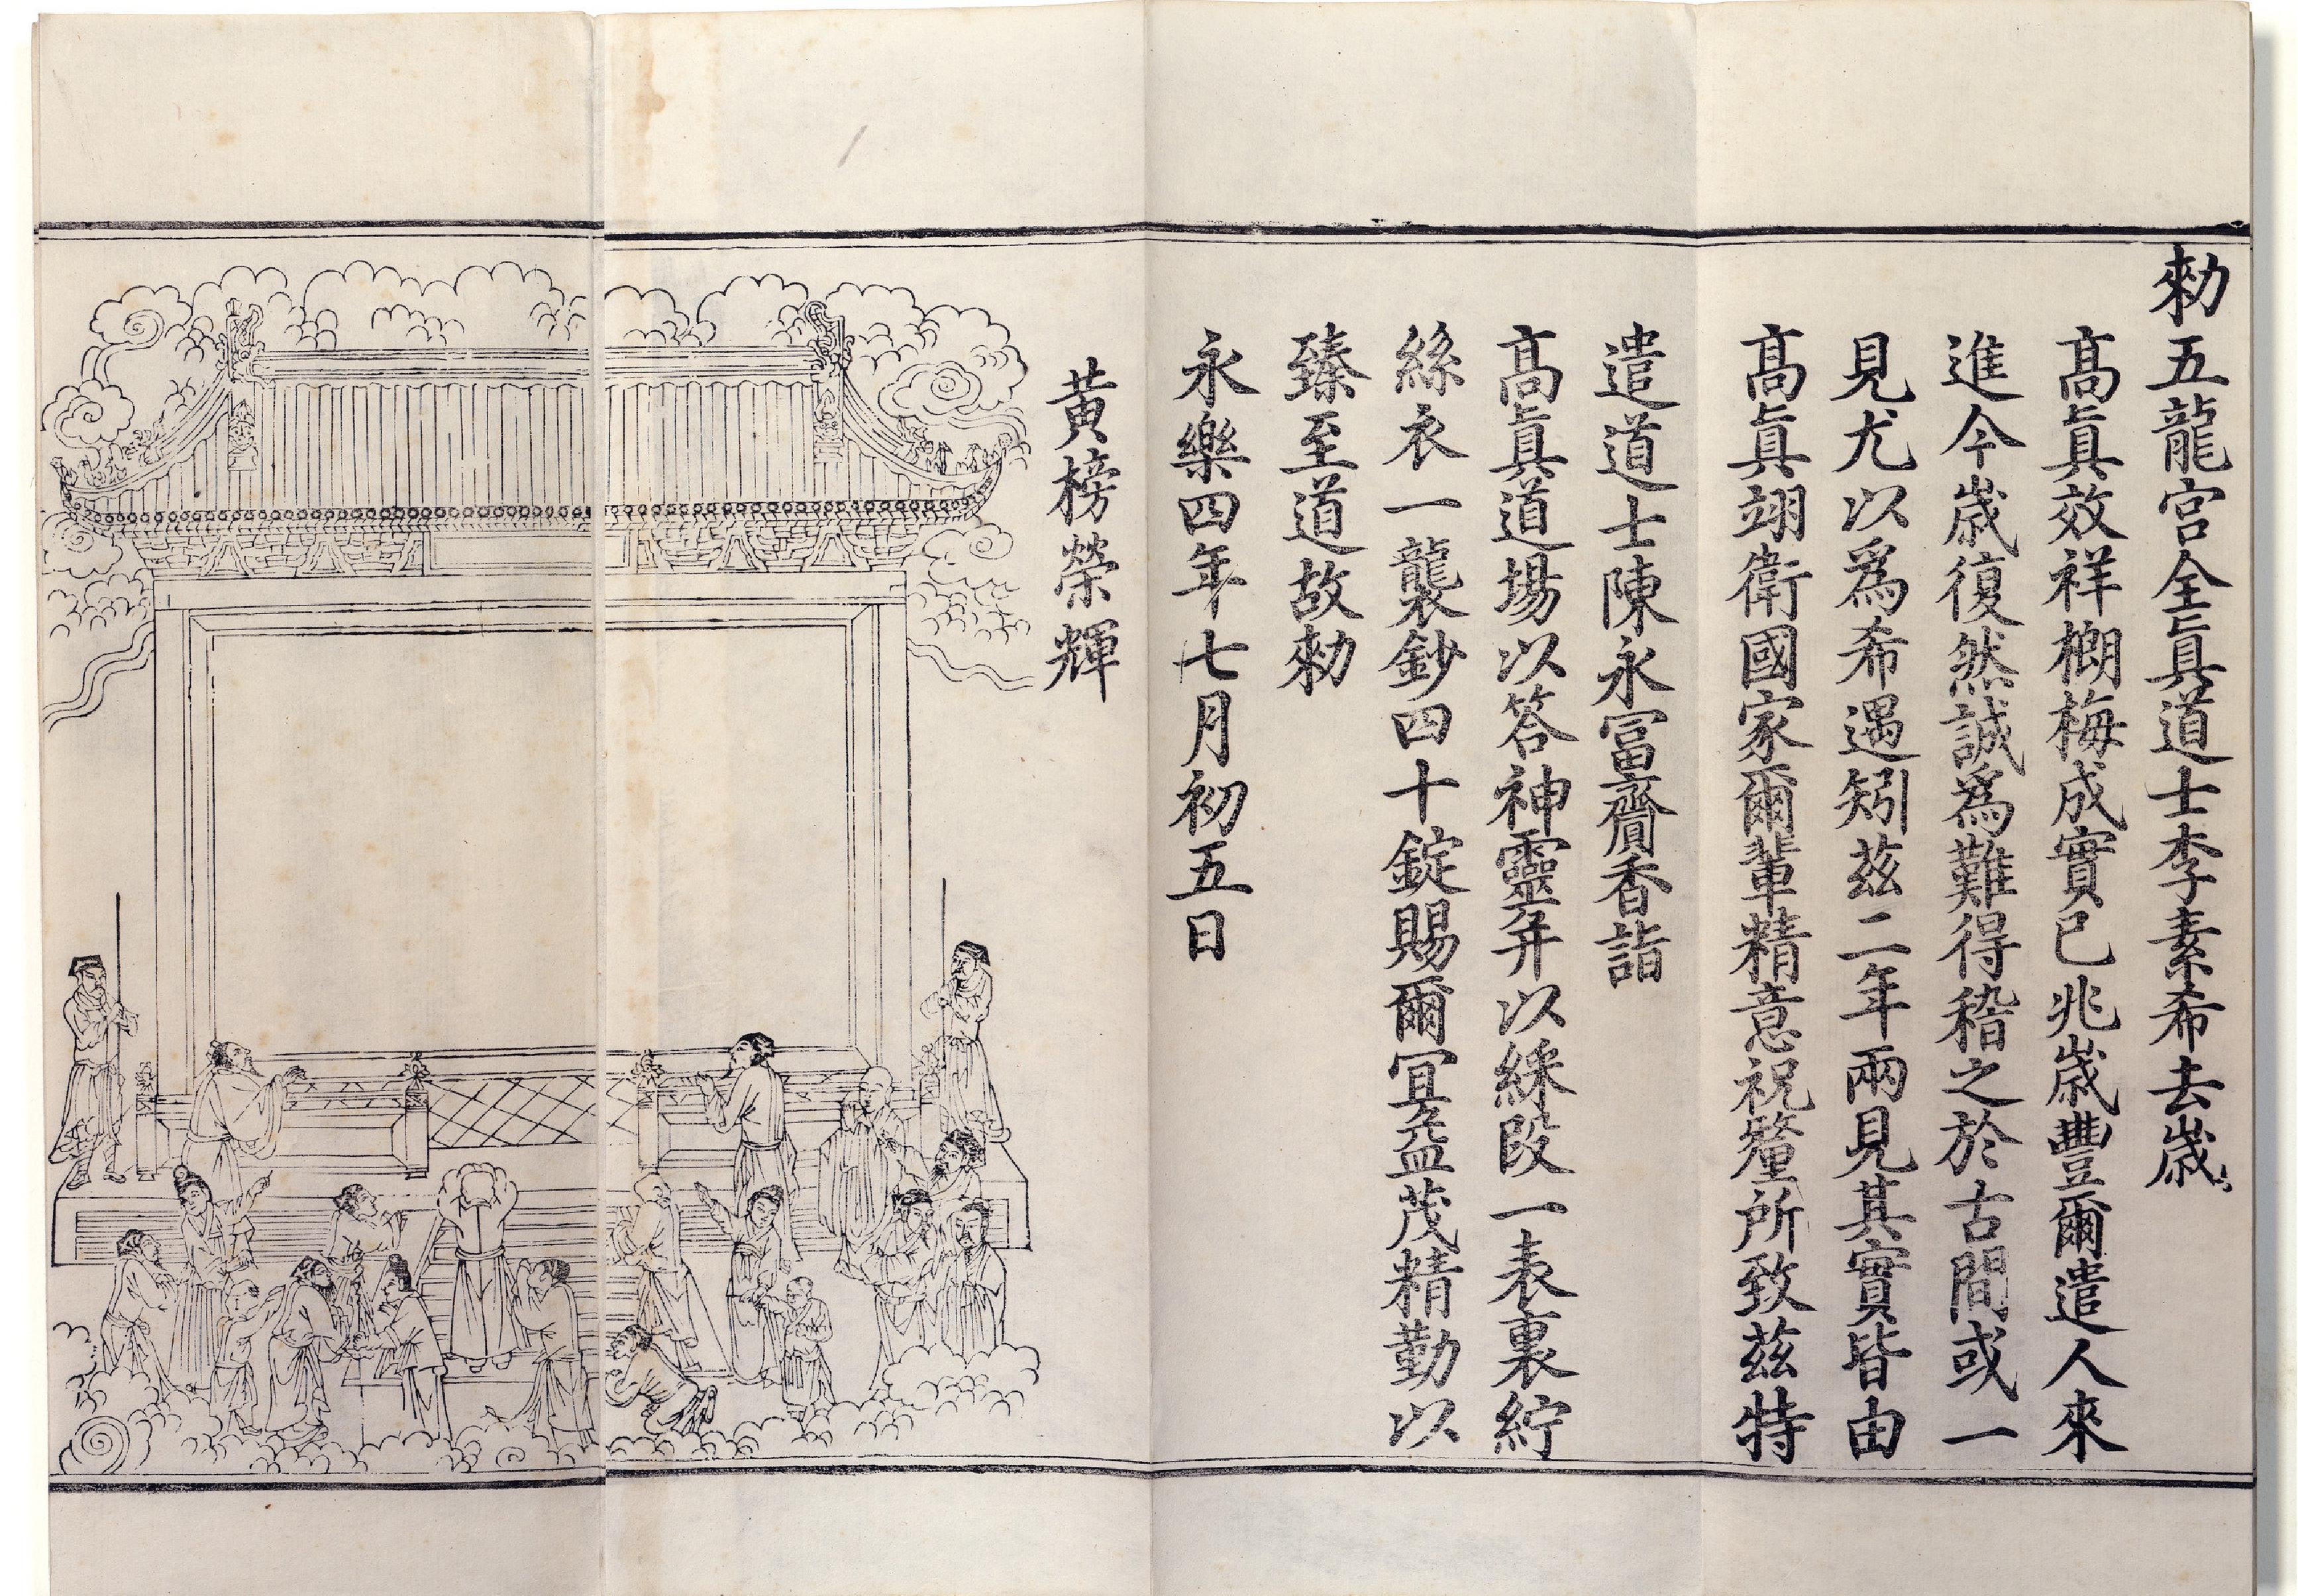 勑五龍宫全真道士李素希去歲
髙真效祥榔梅成實已兆歲豐爾遣人來
進今歲復然誠為難得稽之於古間或一
見尤以爲希遇矧茲二年兩見其實皆由
髙真翊衛國家爾輩精意祝釐所致茲特
遣道士陳永冨齎香詣
髙真道場以答神靈并以綵段一表裏紵
絲衣一襲鈔四十錠賜爾冝益茂精勤以
臻至道故勑
永樂四年七月初五日
黄榜榮輝